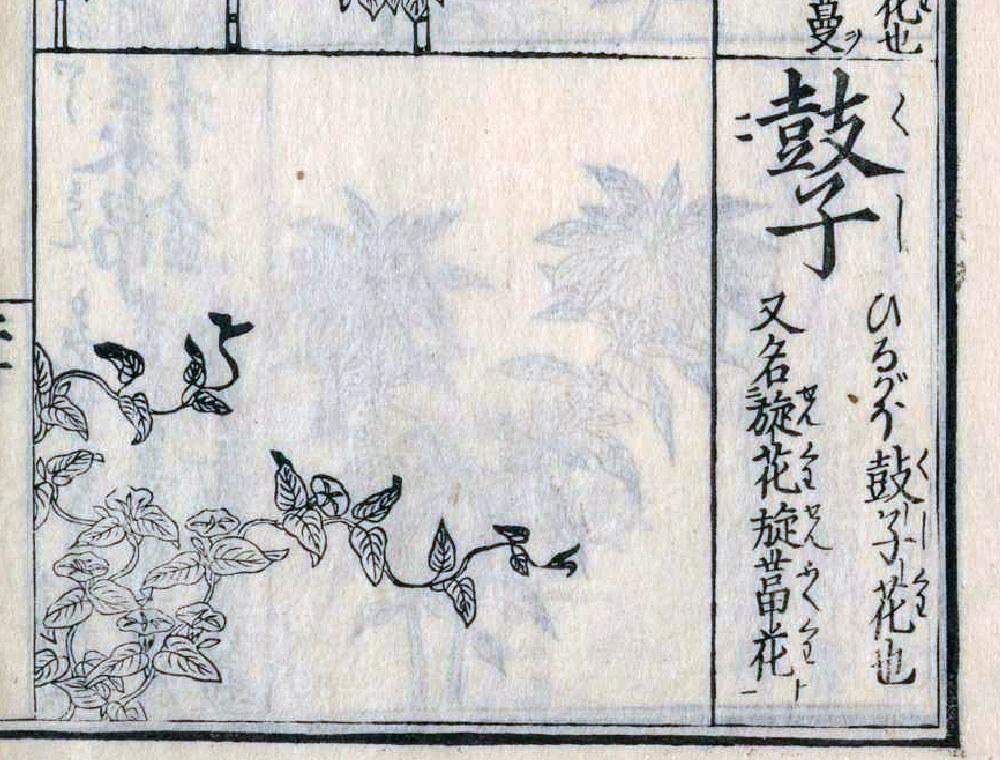 花也
蔓
鼓子
くし
ひるがほ鼓子花也
くしくわ
又名旋花旋葍花
せんくわせんふくくわ